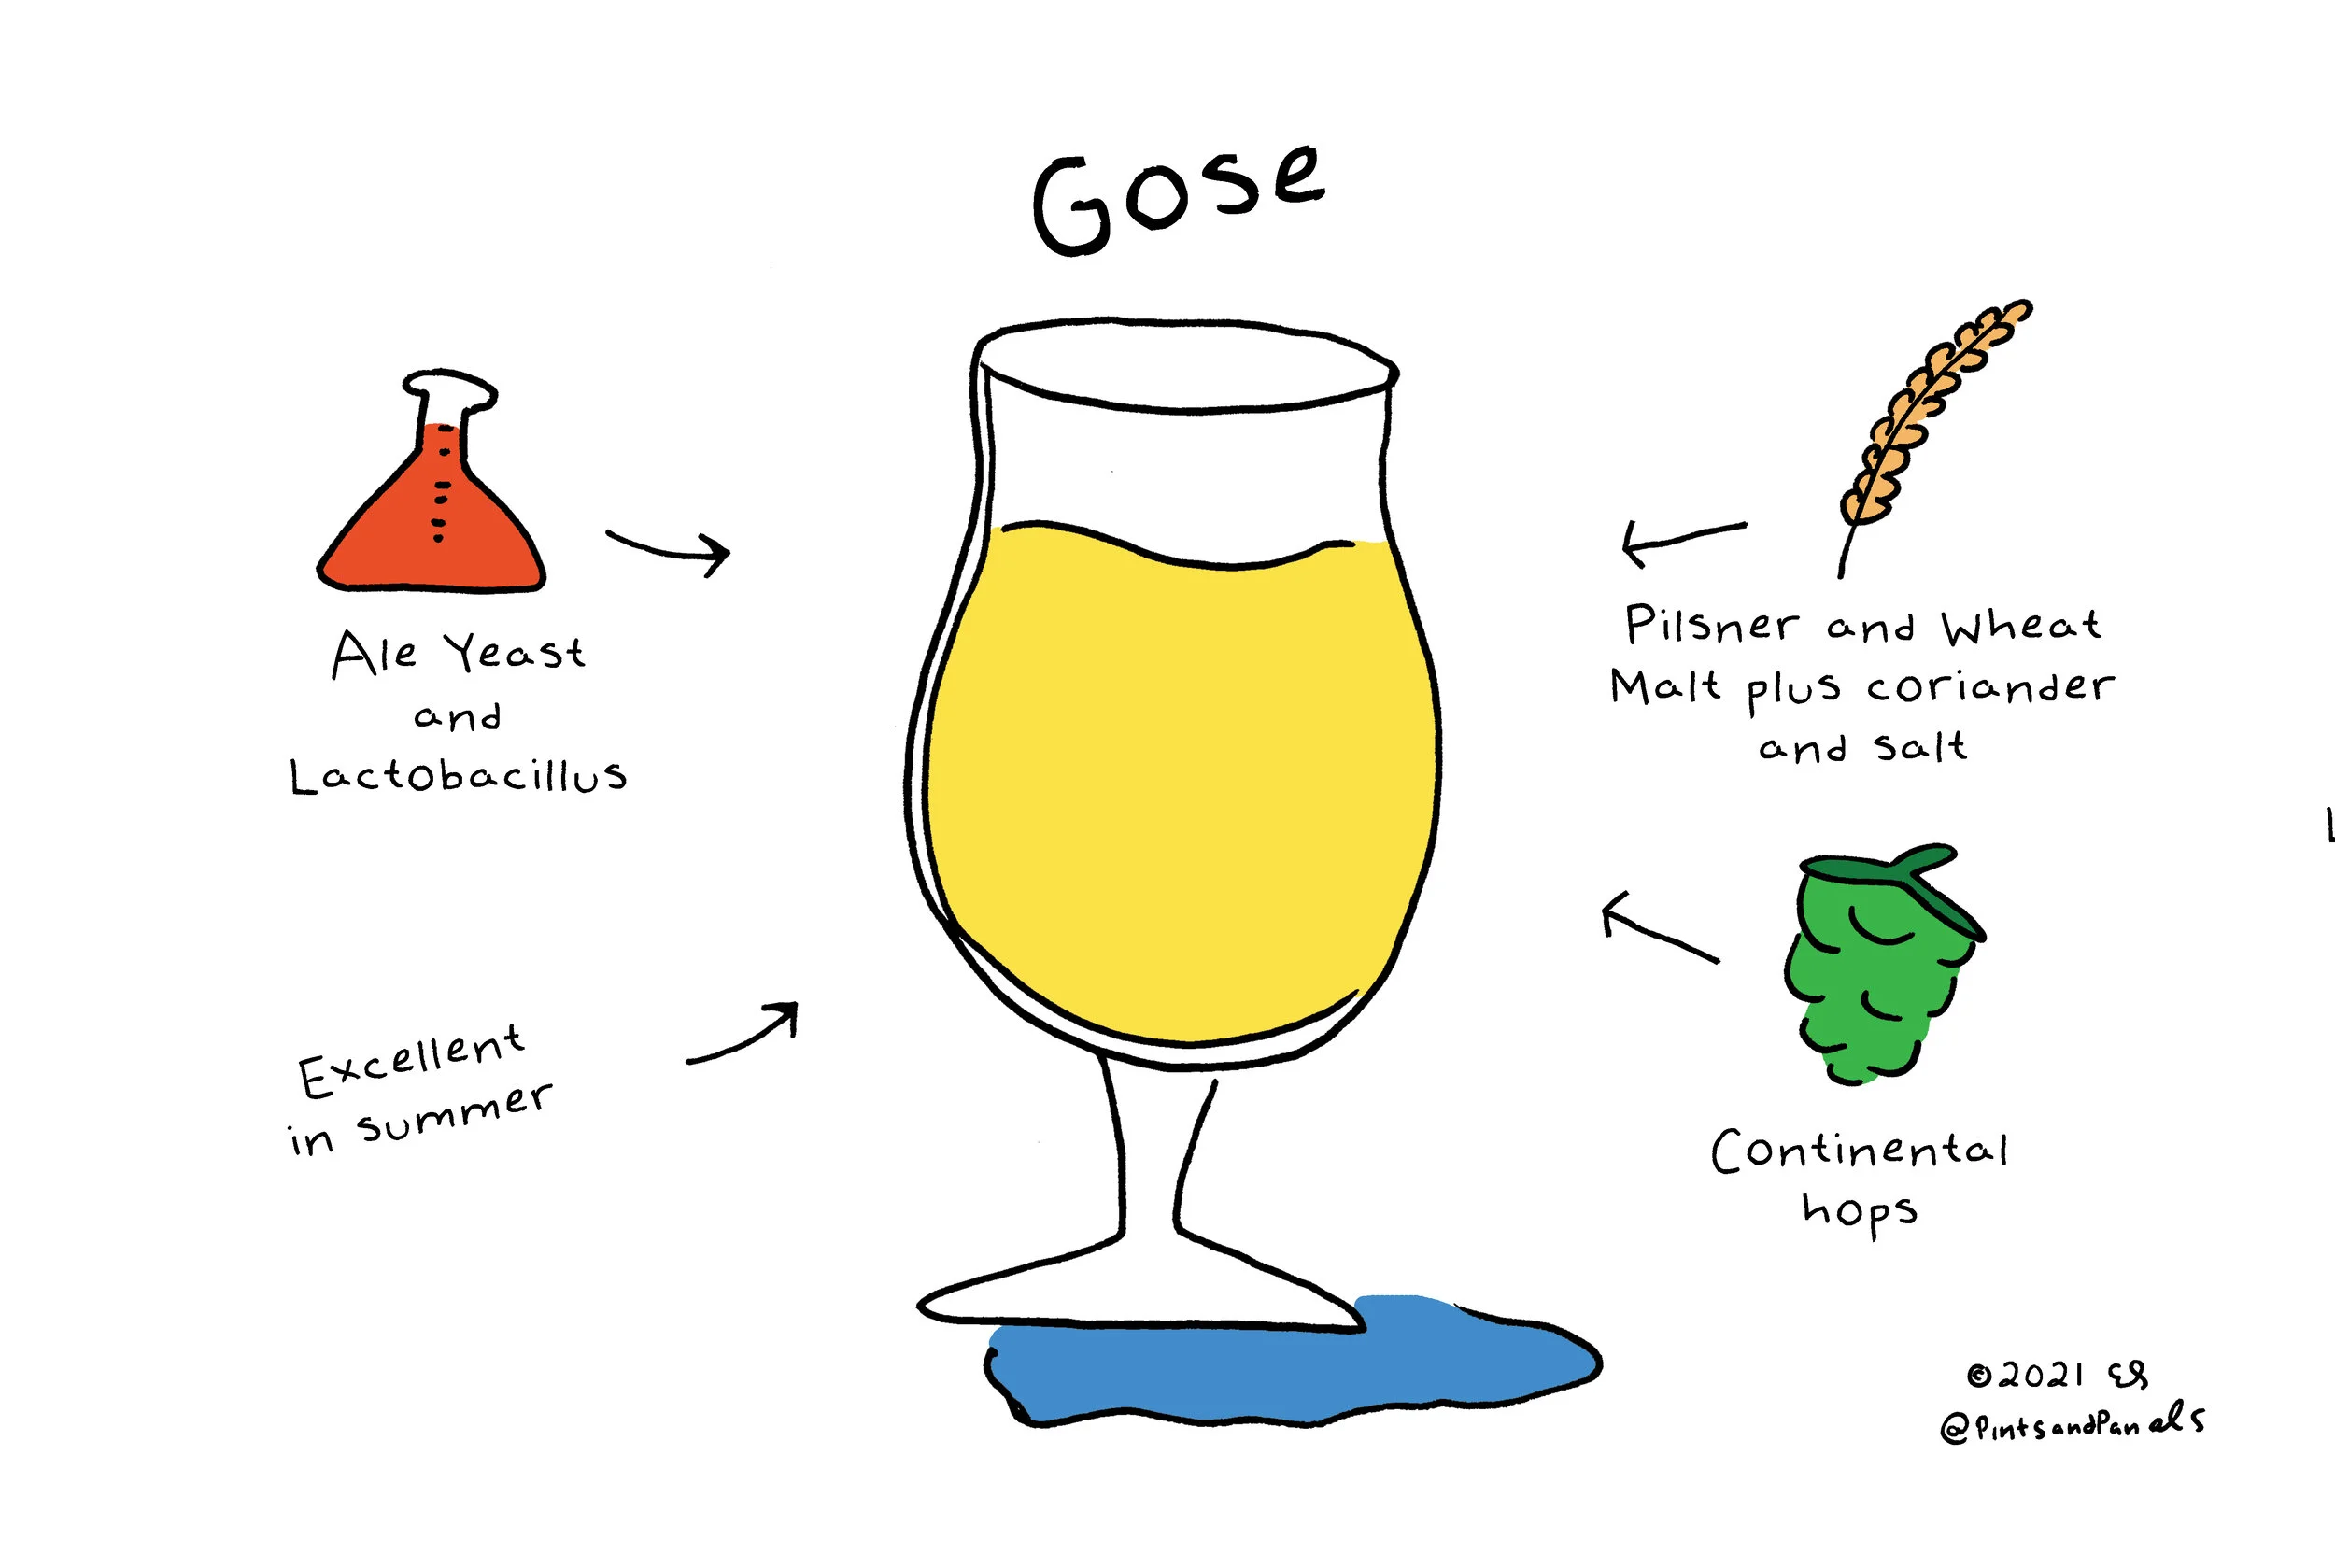 Gose
Ale Yeast
and
Lactobacillus
Pilsner and Wheat
Malt plus coriander
and salt
Excellent
in summer
Continental
hops
©2021 ES
@PintsandPanels